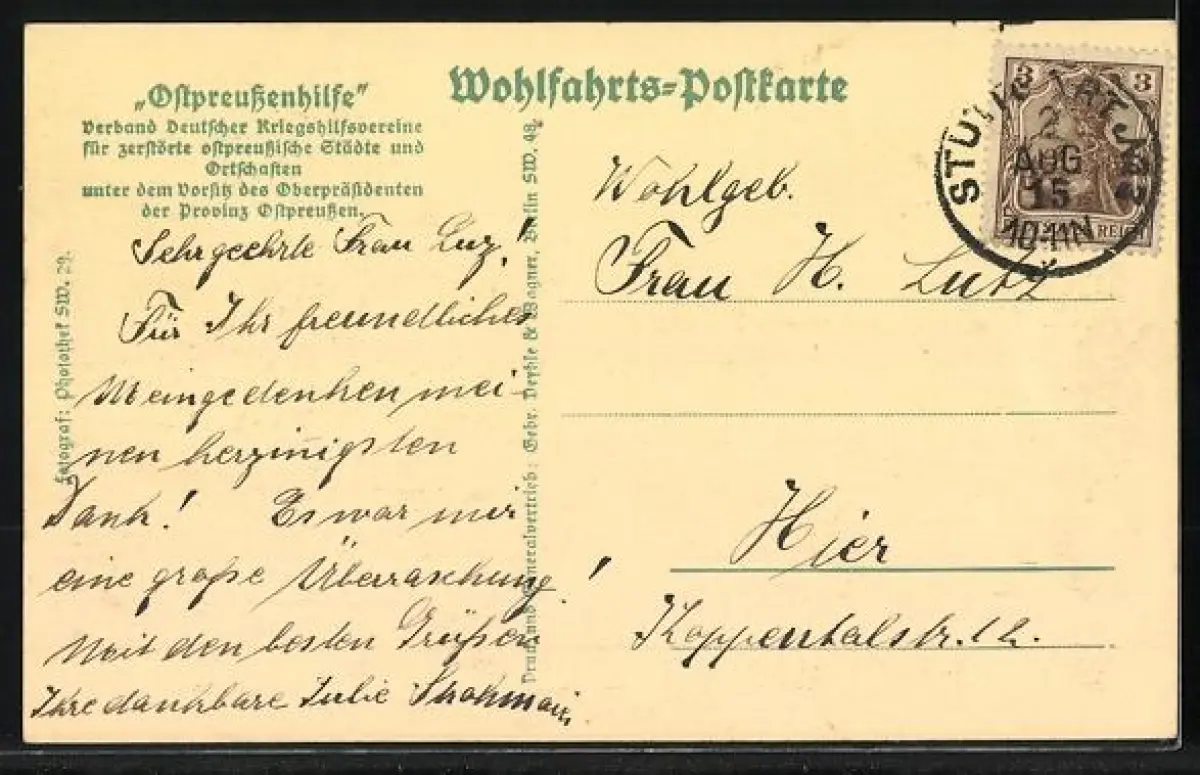 „Ostpreußenhilfe"
Verband Deutscher Kriegshilfsvereine
für zerstörte ostpreußische Städte und
Ortschaften
unter dem Vorsitz des Oberpräsidenten
der Provinz Ostpreußen.
Wohlfahrts-Postkarte
Fotograf: Photothek SW. 29.
Druck und Generalvertrieb: Gebr. Wagner, Berlin SW. 48.
Sehr geehrte Frau Luz!
Für Ihr freundliches
Meingedenken mei-
nen herzinnigsten
Dank! Es war mir
eine große Überraschung!
Mit den besten Grüßen
Ihre dankbare Julie
Wohlgeb.
Frau H. Lutz
Hier
3 3
REICH
2
AUG
15
10-11N